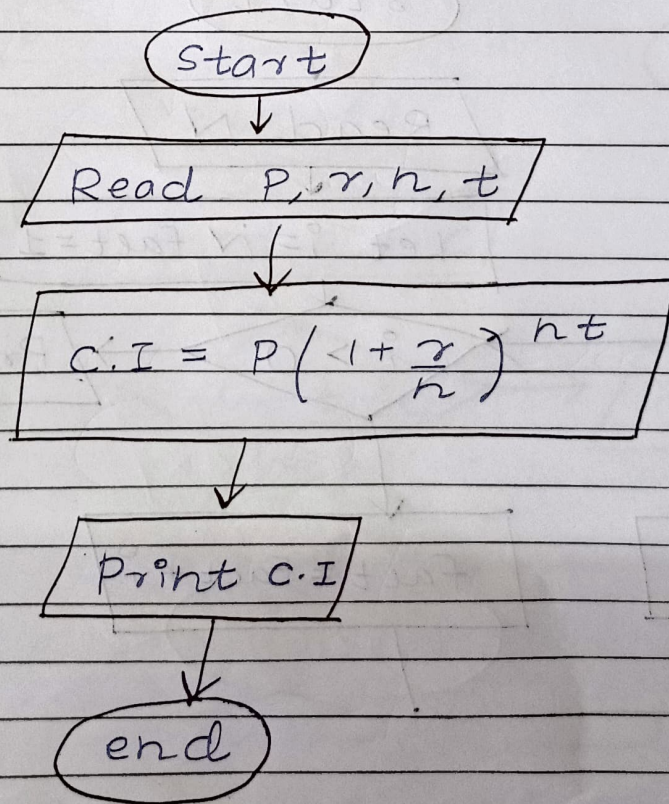 Start
Read P, r, n, t
C.I = P(1 + r/n)^nt
Print C.I
end